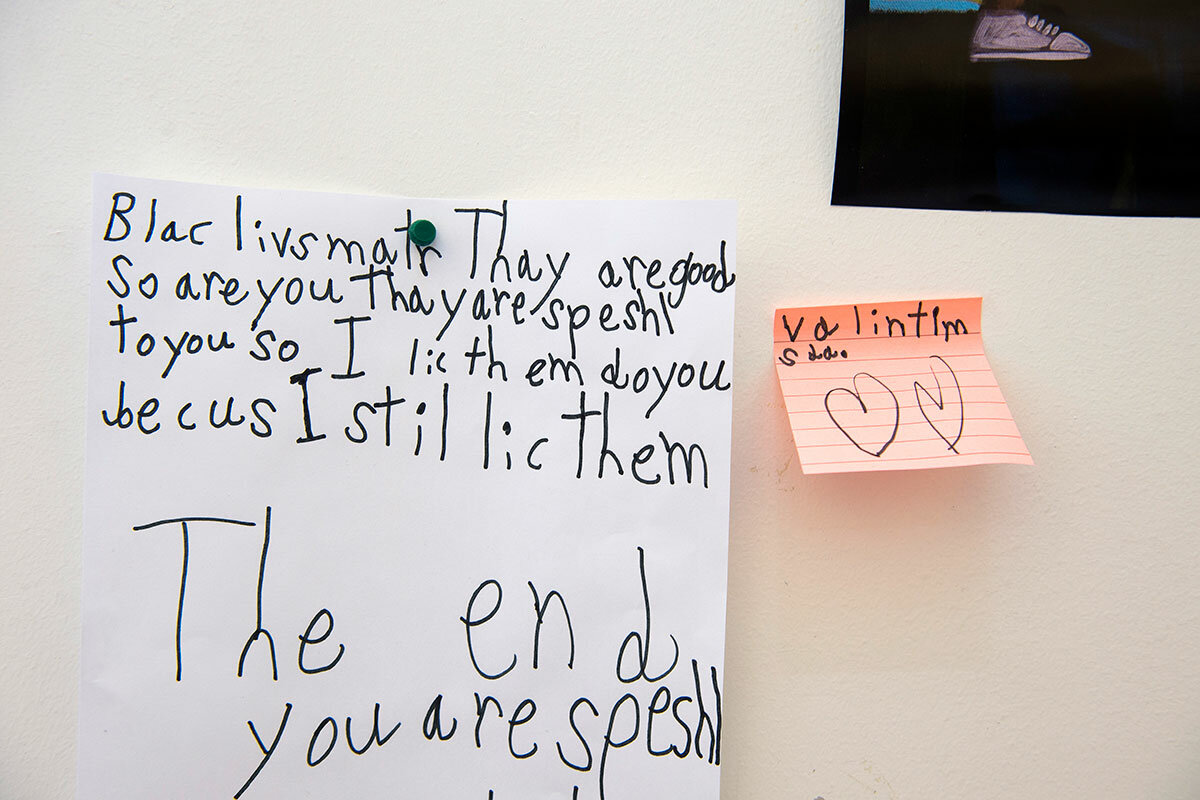 Blac livs matr Thay are good
So are you Thay are speshl
to you so I lic them do you
becus I still lic them
The end
you are speshl
va lintIm
s da.